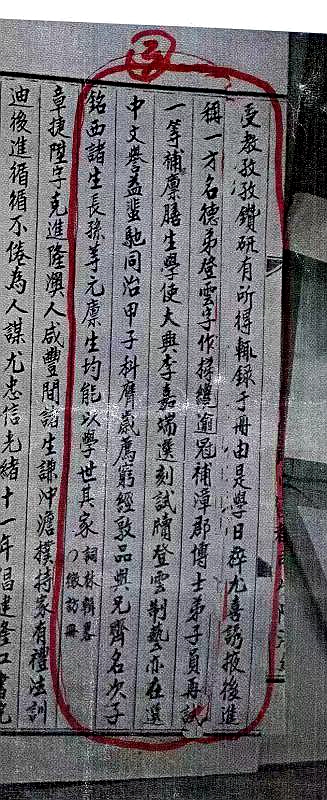 三
受教孜孜鑽研有所得輒錄于冊由是學日粹尤喜誘掖後進
稱一才名德弟登雲字作揖纔逾冠補漳郡博士弟子員再試
一等補廩膳生學使大興李嘉端選刻試牘登雲制藝亦在選
中文譽益蜚馳同治甲子科膺歲薦窮經敦品與兄齊名次子
銘西諸生長孫萼元廩生均能以學世其家
詞林輯畧
徵訪冊
章捷陞字克進隆澳人咸豐間諸生謙沖澹樸持家有禮法訓
迪後進循循不倦為人謀尤忠信光緒十一年倡建隆江書院